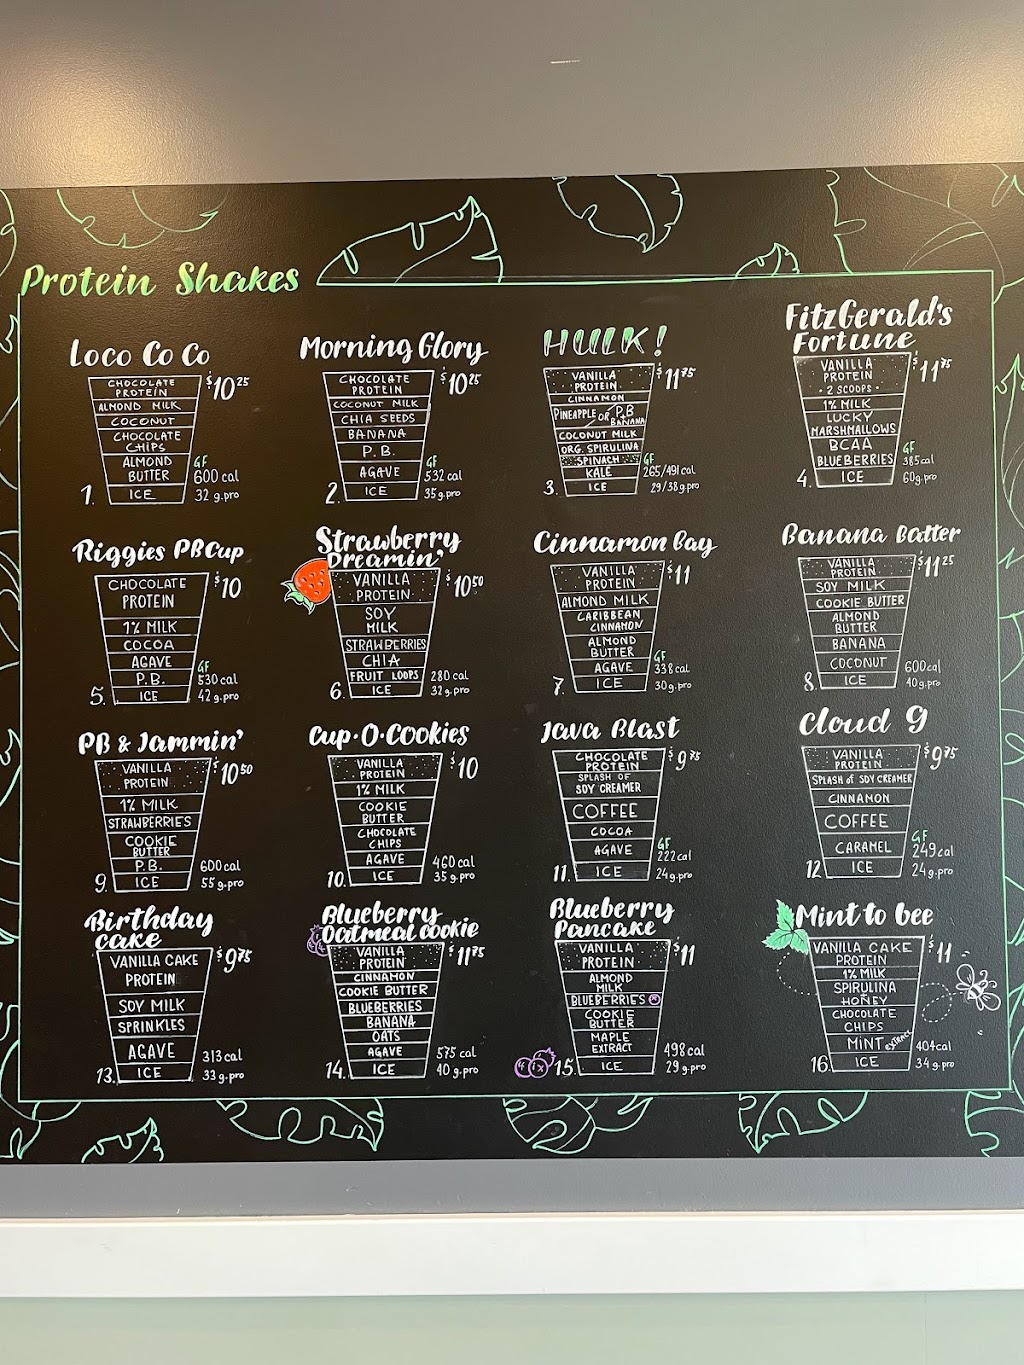 Protein Shakes
Loco Co Co
CHOCOLATE
PROTEIN
$10 25
ALMOND MILK
COCONUT
CHOCOLATE
CHIPS
ALMOND
BUTTER
GF
600 cal
1.
ICE
32 g.pro
Morning Glory
CHOCOLATE
PROTEIN
$10 25
COCONUT MILK
CHIA SEEDS
BANANA
P.B.
AGAVE
GF
532 cal
2.
ICE
35 g.pro
HULK!
VANILLA
PROTEIN
$11 75
CINNAMON
PINEAPPLE OR P.B + BANANA
COCONUT MILK
ORG. SPIRULINA
SPINACH
KALE
GF
265/491 cal
3.
ICE
29/38 g.pro
FitzGerald's
Fortune
VANILLA
PROTEIN
• 2 SCOOPS •
$11 75
1% MILK
LUCKY
MARSHMALLOWS
BCAA
BLUEBERRIES
GF
385 cal
4.
ICE
60g.pro
Riggies PBCup
CHOCOLATE
PROTEIN
$10
1% MILK
COCOA
AGAVE
P.B.
GF
530 cal
5.
ICE
42 g.pro
Strawberry
Dreamin'
VANILLA
PROTEIN
$10 50
SOY
MILK
STRAWBERRIES
CHIA
FRUIT LOOPS
280 cal
6.
ICE
32 g.pro
Cinnamon Bay
VANILLA
PROTEIN
$11
ALMOND MILK
CARIBBEAN
CINNAMON
ALMOND
BUTTER
AGAVE
GF
338 cal
7.
ICE
30g.pro
Banana Batter
VANILLA
PROTEIN
$11 25
SOY MILK
COOKIE BUTTER
ALMOND
BUTTER
BANANA
COCONUT
600 cal
8.
ICE
40g.pro
PB & Jammin'
VANILLA
PROTEIN
$10 50
1% MILK
STRAWBERRIES
COOKIE
BUTTER
P.B.
600 cal
9.
ICE
55 g.pro
Cup·O·Cookies
VANILLA
PROTEIN
$10
1% MILK
COOKIE
BUTTER
CHOCOLATE
CHIPS
AGAVE
460 cal
10.
ICE
35 g.pro
Java Blast
CHOCOLATE
PROTEIN
$9 75
SPLASH OF
SOY CREAMER
COFFEE
COCOA
AGAVE
GF
222 cal
11.
ICE
24 g.pro
Cloud 9
VANILLA
PROTEIN
$9 75
SPLASH of SOY CREAMER
CINNAMON
COFFEE
CARAMEL
GF
249 cal
12
ICE
24 g.pro
Birthday
cake
VANILLA CAKE
PROTEIN
$9 75
SOY MILK
SPRINKLES
AGAVE
313 cal
13.
ICE
33 g.pro
Blueberry
Oatmeal cookie
VANILLA
PROTEIN
$11 75
CINNAMON
COOKIE BUTTER
BLUEBERRIES
BANANA
OATS
AGAVE
575 cal
14.
ICE
40 g.pro
Blueberry
Pancake
VANILLA
PROTEIN
$11
ALMOND
MILK
BLUEBERRIES
COOKIE
BUTTER
MAPLE
EXTRACT
498 cal
15.
ICE
29 g.pro
Mint to bee
VANILLA CAKE
PROTEIN
$11
1% MILK
SPIRULINA
HONEY
CHOCOLATE
CHIPS
MINT EXTRACT
404 cal
16.
ICE
34 g.pro